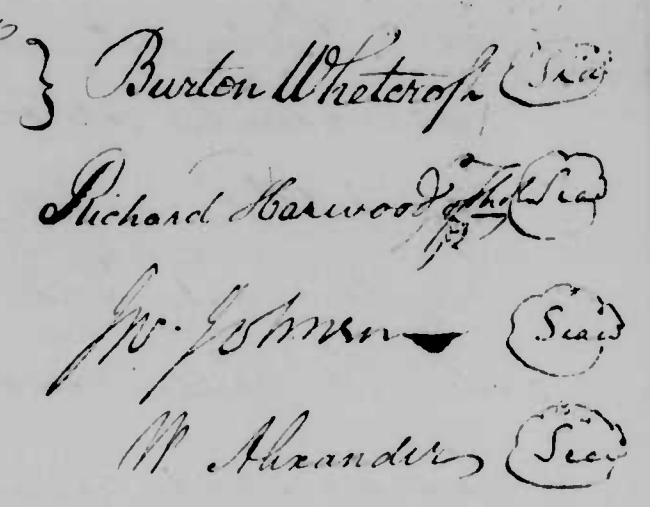 } Burton Whetcroft Seal
Richard Harwood of Thos Seal
Jno. Johnson Seal
W Alexander Seal